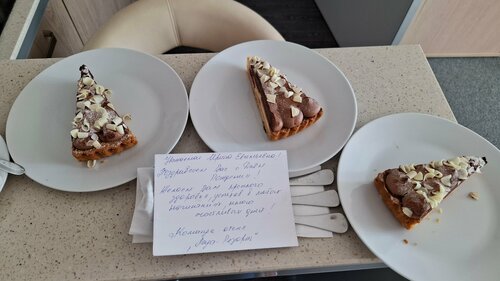 Уважаемая Ирина Евгеньевна!
Поздравляем Вас с Днём
Рождения!
Желаем Вам крепкого
здоровья, успехов в любых
начинаниях, много
счастливых дней!
"Команда отеля